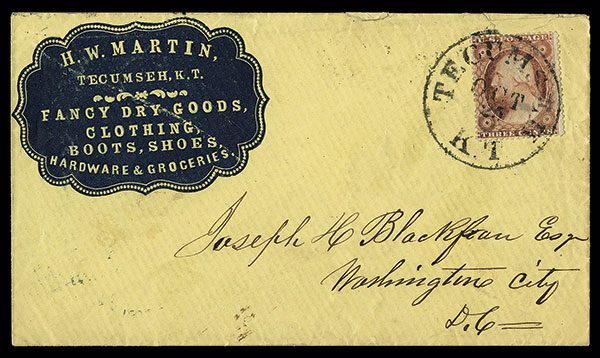 H. W. MARTIN,
TECUMSEH, K.T.
FANCY DRY GOODS,
CLOTHING,
BOOTS, SHOES,
HARDWARE & GROCERIES.
TECUMSEH
OCT
K.T
THREE CENTS
Joseph H Blackfean Esqr
Washington City
D.C